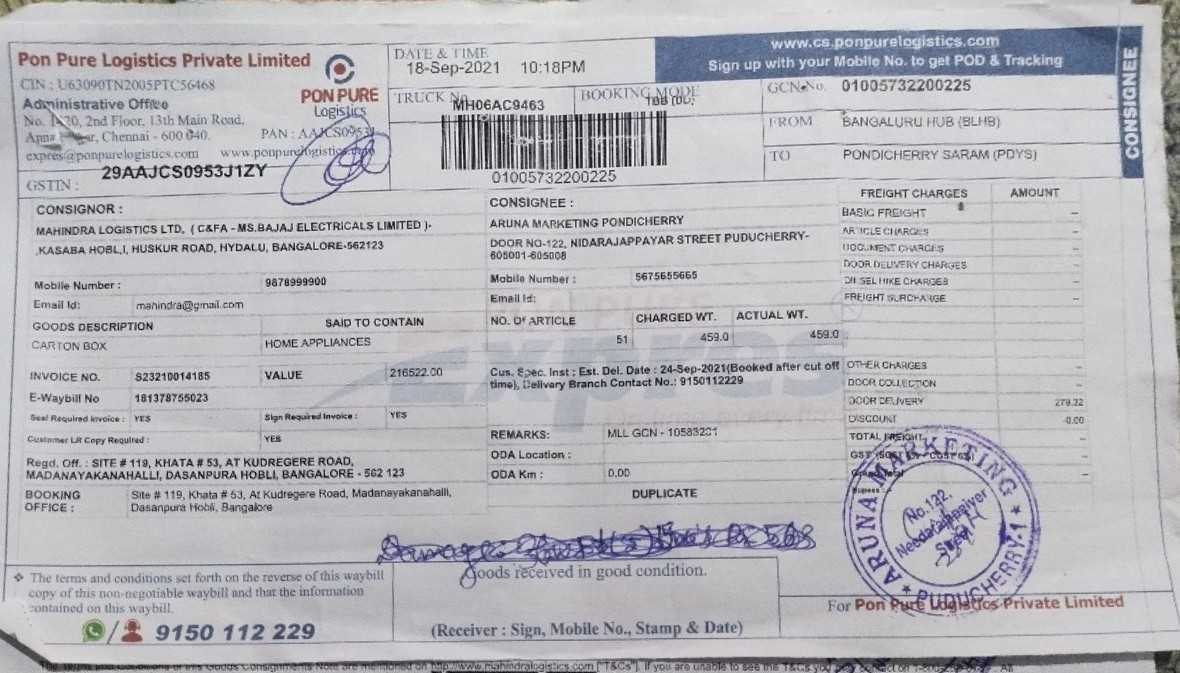 Pon Pure Logistics Private Limited
CIN : U63090TN2005PTC56468
Administrative Office
2nd Floor, 13th Main Road,
Chennai - 600 040.
PAN : AAJCS0953J
expres@ponpurelogistics.com
GSTIN :
29AAJCS0953J1ZY
PON PURE
Logistics
DATE & TIME
18-Sep-2021 10:18PM
TRUCK No.
MH06AC9463
BOOKING MODE
01005732200225
www.cs.ponpurelogistics.com
Sign up with your Mobile No. to get POD & Tracking
GCN No. 01005732200225
FROM BANGALURU HUB (BLHB)
TO PONDICHERRY SARAM (PDYS)
CONSIGNEE
CONSIGNOR :
MAHINDRA LOGISTICS LTD, ( C&FA - MS.BAJAJ ELECTRICALS LIMITED )-
,KASABA HOBLI,I, HUSKUR ROAD, HYDALU, BANGALORE-562123
Mobile Number : 9878999900
Email Id: mahindra@gmail.com
CONSIGNEE :
ARUNA MARKETING PONDICHERRY
DOOR NO-122, NIDARAJAPPAYAR STREET PUDUCHERRY-
605001-605008
Mobile Number : 5675655665
Email Id:
GOODS DESCRIPTION SAID TO CONTAIN
CARTON BOX HOME APPLIANCES
NO. OF ARTICLE CHARGED WT. ACTUAL WT.
51 459.0 459.0
INVOICE NO. S23210014185 VALUE 216522.00
E-Waybill No 181378755023
Seal Required Invoice : YES Sign Required Invoice : YES
Customer LR Copy Required : YES
Cus. Spec. Inst : Est. Del. Date : 24-Sep-2021(Booked after cut off
time), Delivery Branch Contact No.: 9150112229
REMARKS: MLL GCN - 10583201
ODA Location :
ODA Km : 0.00
DUPLICATE
Regd. Off. : SITE # 119, KHATA # 53, AT KUDREGERE ROAD,
MADANAYAKANAHALLI, DASANPURA HOBLI, BANGALORE - 562 123
BOOKING OFFICE : Site # 119, Khata # 53, At Kudregere Road, Madanayakanahalli,
Dasanpura Hobli, Bangalore
FREIGHT CHARGES AMOUNT
BASIC FREIGHT --
ARTICLE CHARGES --
DOCUMENT CHARGES --
DOOR DELIVERY CHARGES --
DIESEL HIKE CHARGES --
FREIGHT SURCHARGE --
OTHER CHARGES --
DOOR COLLECTION --
DOOR DELIVERY 279.22
DISCOUNT -0.00
TOTAL FREIGHT --
expres
ARUNA MARKETING
No.132,
PUDUCHERRY-1
❖ The terms and conditions set forth on the reverse of this waybill
copy of this non-negotiable waybill and that the information
contained on this waybill.
9150 112 229
Goods received in good condition.
(Receiver : Sign, Mobile No., Stamp & Date)
For Pon Pure Logistics Private Limited